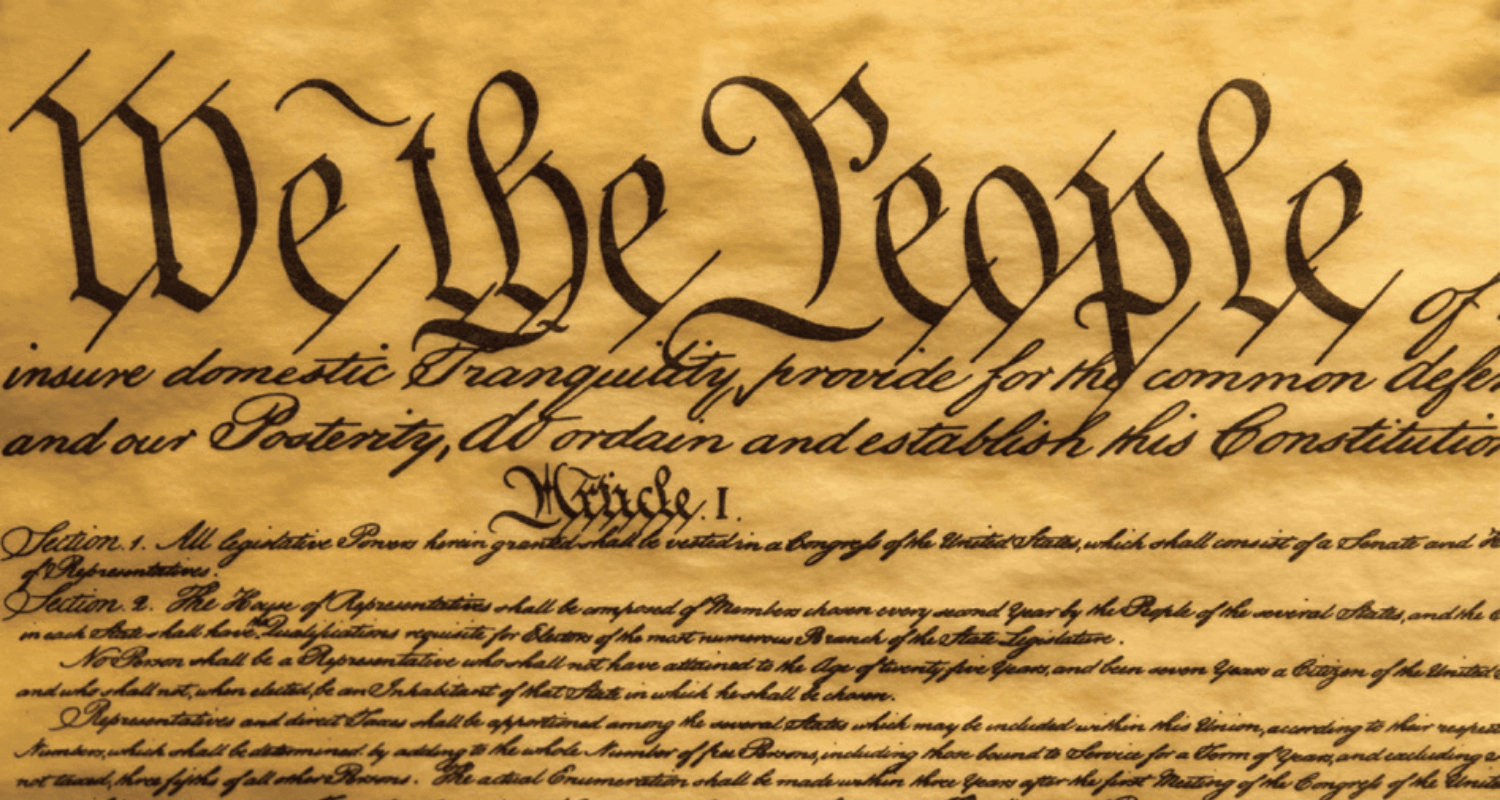 We the People of
insure domestic Tranquility, provide for the common defen
and our Posterity, do ordain and establish this Constitution
Article. I.
Section. 1. All legislative Powers herein granted shall be vested in a Congress of the United States, which shall consist of a Senate and H
of Representatives.
Section. 2. The House of Representatives shall be composed of Members chosen every second Year by the People of the several States, and the E
in each State shall have the Qualifications requisite for Electors of the most numerous Branch of the State Legislature.
No Person shall be a Representative who shall not have attained to the Age of twenty five Years, and been seven Years a Citizen of the United
and who shall not, when elected, be an Inhabitant of that State in which he shall be chosen.
Representatives and direct Taxes shall be apportioned among the several States which may be included within this Union, according to their respe
Numbers, which shall be determined by adding to the whole Number of free Persons, including those bound to Service for a Term of Years, and excluding
not taxed, three fifths of all other Persons. The actual Enumeration shall be made within three Years after the first Meeting of the Congress of the Unit